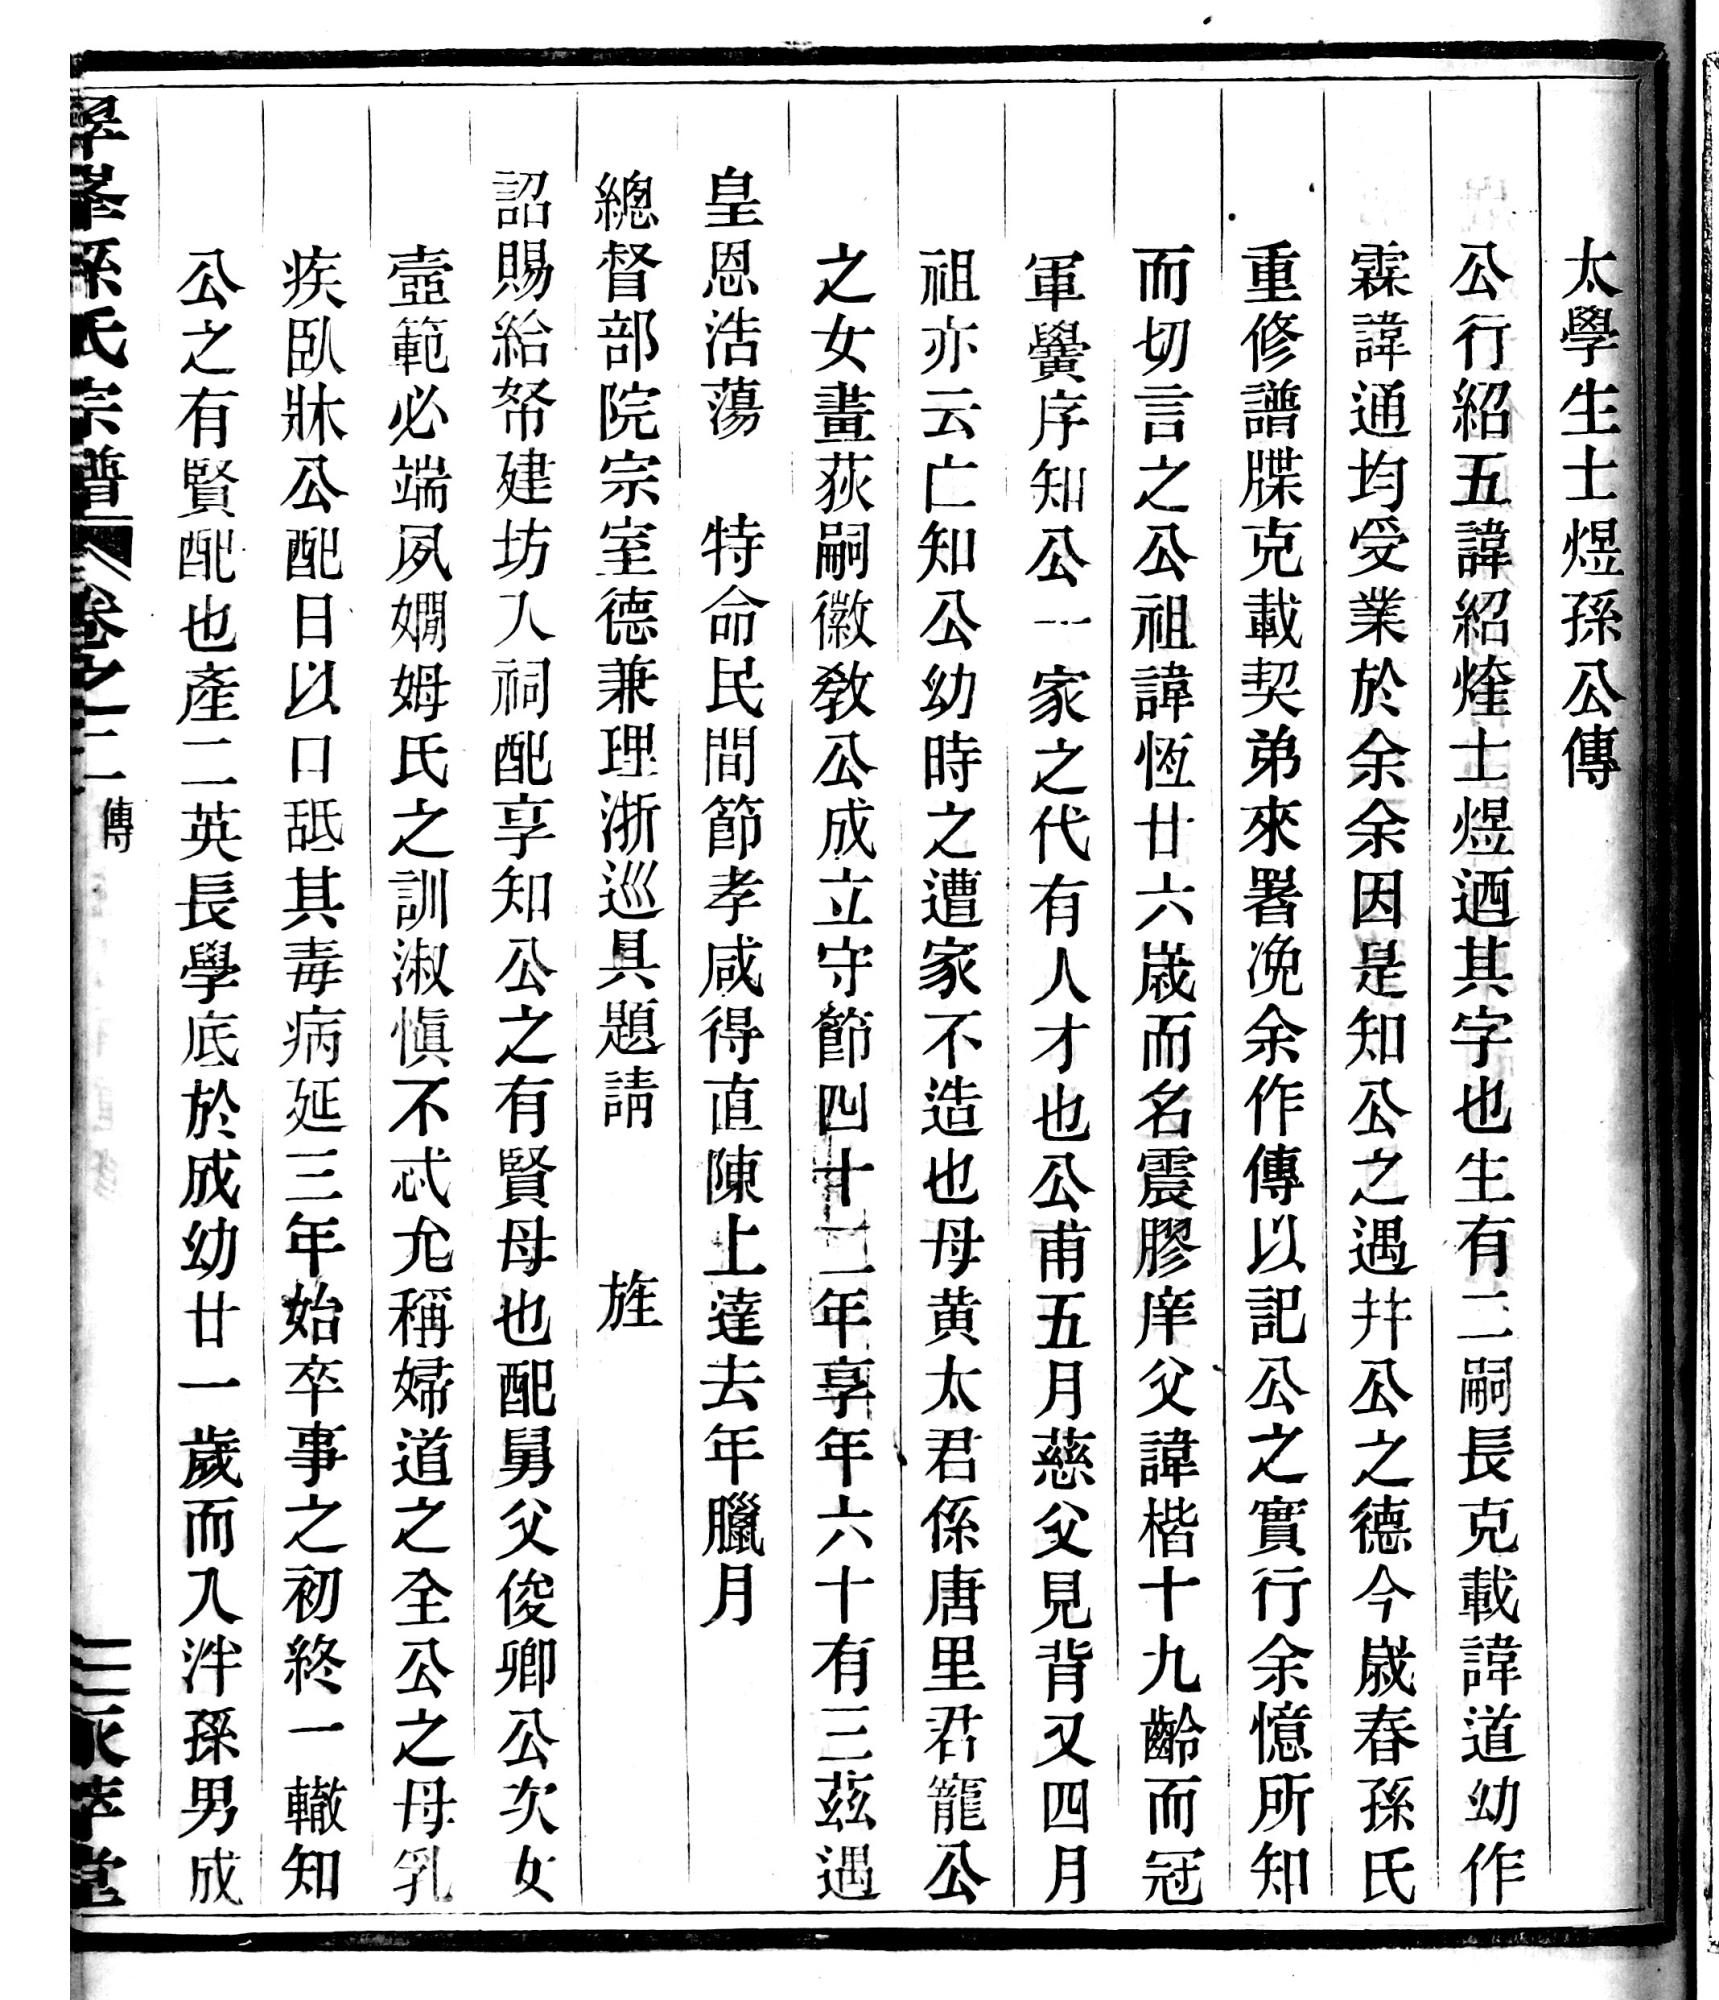 太學生士煜孫公傳
公行紹五諱紹煃士煜迺其字也生有二嗣長克載諱道幼作
霖諱通均受業於余余因是知公之遇并公之德今歲春孫氏
重修譜牒克載契弟來署凂余作傳以記公之實行余憶所知
而切言之公祖諱恆廿六歲而名震膠庠父諱楷十九齡而冠
軍黌序知公一家之代有人才也公甫五月慈父見背又四月
祖亦云亡知公幼時之遭家不造也母黃太君係唐里君寵公
之女畫荻嗣徽教公成立守節四十二年享年六十有三茲遇
皇恩浩蕩 特命民間節孝咸得直陳上達去年臘月
總督部院宗室德兼理浙巡具題請 旌
詔賜給帑建坊入祠配享知公之有賢母也配舅父俊卿公次女
壼範必端夙嫺姆氏之訓淑慎不忒允稱婦道之全公之母乳
疾臥牀公配日以口舐其毒病延三年始卒事之初終一轍知
公之有賢配也產二英長學底於成幼廿一歲而入泮孫男成
孫氏宗譜 卷之二 傳
堂